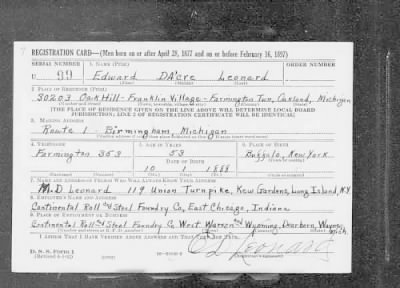 REGISTRATION CARD—(Men born on or after April 28, 1877 and on or before February 16, 1897)
SERIAL NUMBER 1. NAME (Print) ORDER NUMBER
U 99 Edward DAcre Leonard
2. PLACE OF RESIDENCE (Print)
30203 Oak Hill - Franklin Village - Farmington Twn, Oakland, Michigan
[THE PLACE OF RESIDENCE GIVEN ON THE LINE ABOVE WILL DETERMINE LOCAL BOARD
JURISDICTION; LINE 2 OF REGISTRATION CERTIFICATE WILL BE IDENTICAL]
3. MAILING ADDRESS
Route 1 - Birmingham, Michigan
4. TELEPHONE 5. AGE IN YEARS 6. PLACE OF BIRTH
Farmington 353 53 Buffalo, New York
DATE OF BIRTH
10 1 1888
7. NAME AND ADDRESS OF PERSON WHO WILL ALWAYS KNOW YOUR ADDRESS
M. D Leonard 119 Union Turnpike, Kew Gardens, Long Island, N.Y
8. EMPLOYER'S NAME AND ADDRESS
Continental Roll and Steel Foundry Co, East Chicago, Indiana
9. PLACE OF EMPLOYMENT OR BUSINESS
Continental Roll and Steel Foundry Co West Warren and Wyoming, Dearborn, Wayne, Mich
I AFFIRM THAT I HAVE VERIFIED ABOVE ANSWERS AND THAT THEY ARE TRUE.
D. S. S. Form 1
(Revised 4-1-42) (over)
E D Leonard